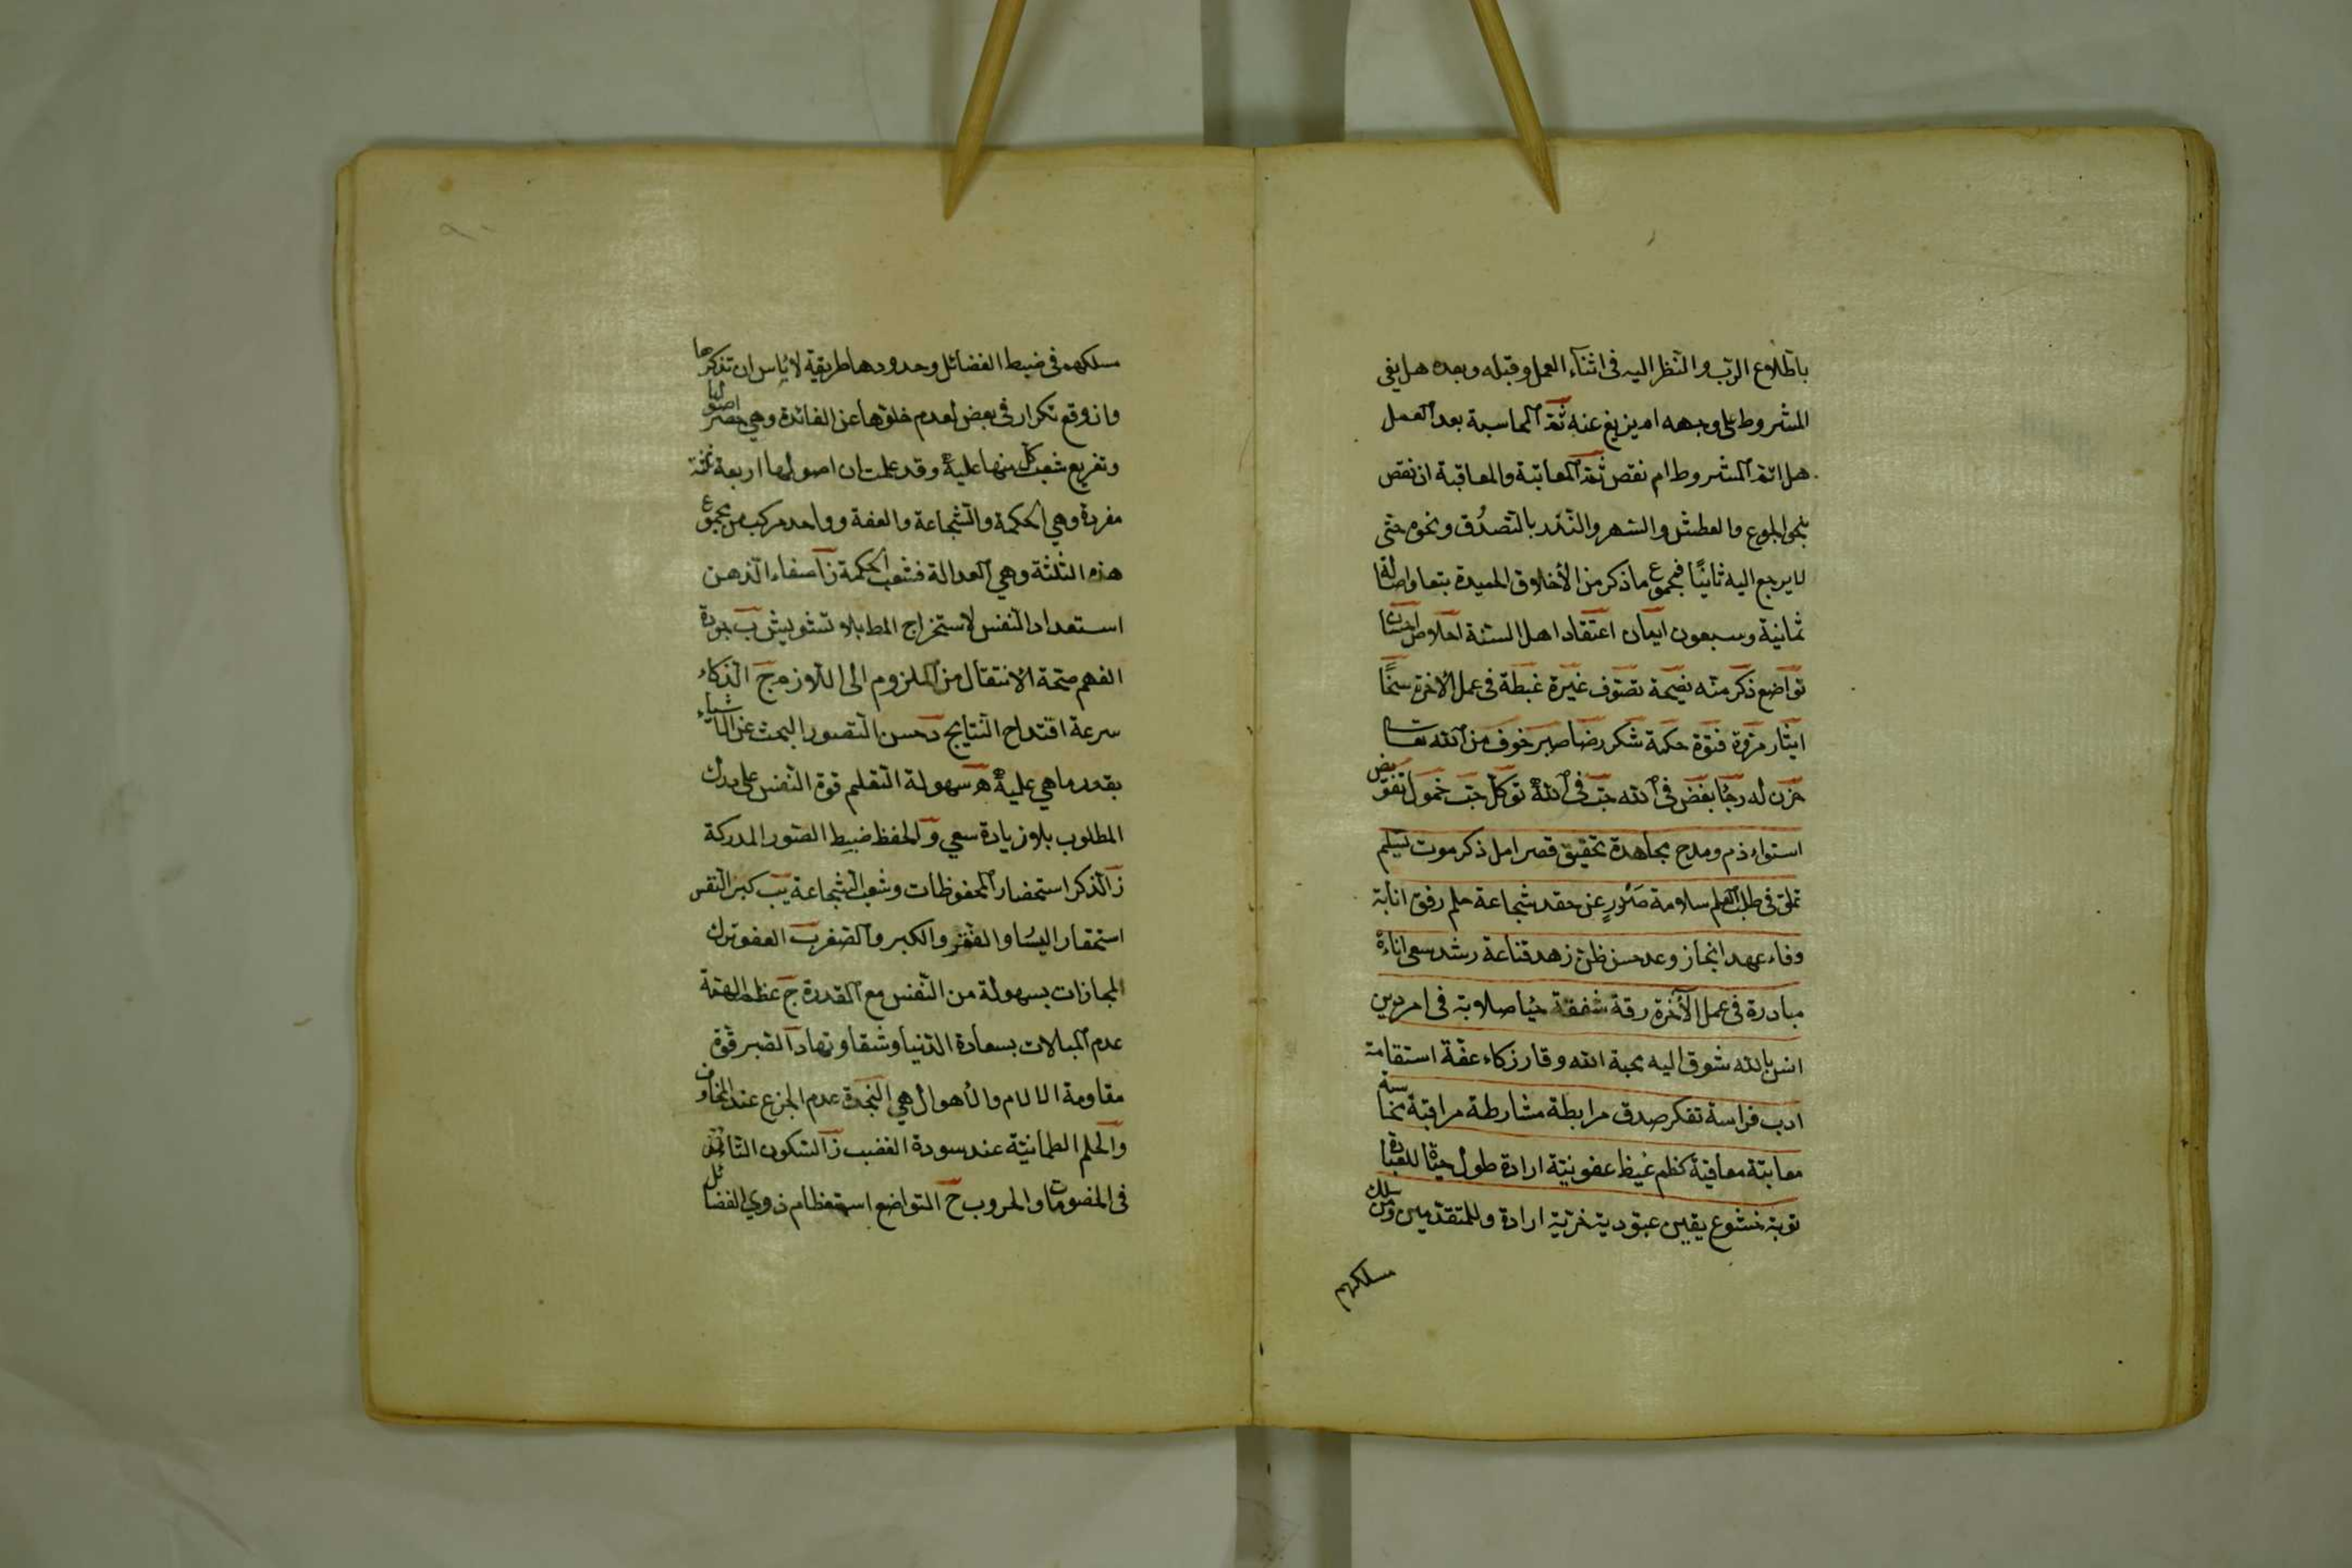 باطلاع الرب والنظر اليه فى اثناء العمل وقبله وبعده هل يفى
المشروط على وجهه ام يزيغ عنه ثم المحاسبة بعد العمل
هل اتم المشروط ام نقص ثم المعاتبة والمعاقبة ان نقص
بنحو الجوع والعطش والسهر والنذر بالتصدق ونحوه حتى
لا يرجع اليه ثانيا فمجموع ما ذكر من الأخلاق الحميدة
ثمانية وسبعون ايمان اعتقاد اهل السنة اخلاص احسان
تواضع ذكر منه نصيحة تصوف غيرة غبطة فى عمل الاخرة سخا
ايثار مروة فتوة حكمة شكر رضا صبر خوف من الله تعالى
حزن له رجا بغض فى الله حب فى الله توكل حب خمول تفويض
استواء ذم ومدح مجاهدة تحقيق قصر امل ذكر موت تسليم
تملق فى طلب العلم سلامة صدر عن حقد شجاعة حلم رفق انابة
وفاء عهد انجاز وعد حسن ظن زهد قناعة رشد سعى اناءة
مبادرة فى عمل الآخرة رقة شفقة حيا صلابة فى امر دين
انس بالله شوق اليه محبة الله وقار زكاء عفة استقامة
ادب فراسة تفكر صدق مرابطة مشارطة مراقبة محاسبة
معاتبة معاقبة كظم غيظ عفو نية ارادة طول حياة للعبادة
توبة خشوع يقين عبودية حرية ارادة وللمتقدمين مسلك
مسلكهم
مسلكهم فى ضبط الفضائل وحدودها طريقة لا بأس ان نذكرها
وان وقع تكرار فى بعض لعدم خلوها عن الفائدة وهى حصر اصولها
وتفريع شعب كل منها عليه وقد علمت ان اصولها اربعة ثلثة
مفردة وهي الحكمة والشجاعة والعفة وواحد مركب من مجموع
هذه الثلثة وهي العدالة فشعب الحكمة ز آ صفاء الذهن
استعداد النفس لاستخراج المط بلا تشويش ب جودة
الفهم صحة الانتقال من الملزوم الى اللازم ج الذكاء
سرعة اقتداح النتايج د حسن التصور البحث عن الاشياء
بقدر ما هي عليه ه سهولة التعلم قوة النفس على درك
المطلوب بلا زيادة سعي و الحفظ ضبط الصور المدركة
ز الذكر استحضار المحفوظات وشعب الشجاعة يب كبر النفس
استحقار اليسار والفقر والكبر والصغر ب العفو ترك
المجازات بسهولة من النفس مع المقدرة ج عظم الهمة
عدم المبالات بسعادة الدنيا وشقاوتها د الصبر قوة
مقاومة الالام والأهوال هي النجدة عدم الجزع عند المخاوف
و الحلم الطمانية عند سورة الغضب ز السكون التانى
فى الخصومات والحروب ح التواضع استعظام ذوي الفضائل